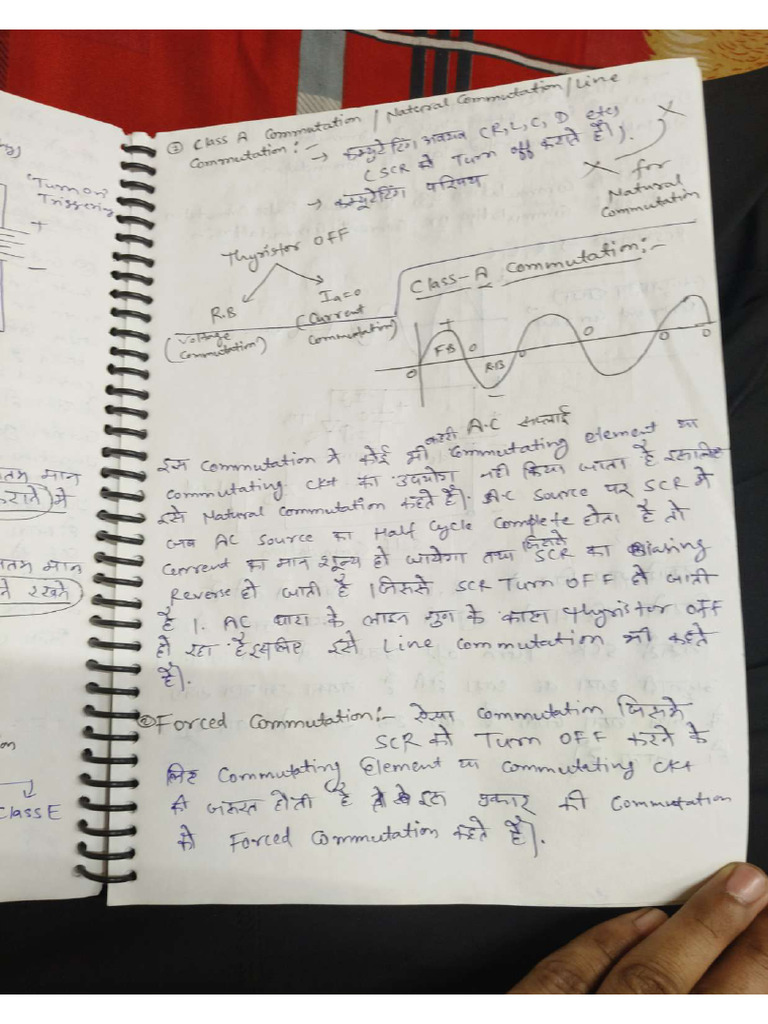 ing)
"Turn on,
Triggering
+
-
तम मान
कराते में
तम मान
ने रखने
on
Class E
① Class A Commutation / Natural Commutation/Line
Commutation:-
→ कम्युटेटिंग अवयव (R, L, C, D etc)
(SCR को Turn off कराते हैं।)
→ कम्यूटेटिंग परिपथ
for
Natural
Commutation
Thyristor OFF
R.B
(Voltage
Commutation)
Ia=0
(Current
Commutation)
Class-A Commutation:-
+
F.B
0
0
R.B
0
0
0
0
-
A.C सप्लाई
इस Commutation में कोई भी Commutating element या
Commutating CKt का उपयोग नहीं किया जाता है इसलिए
इसे Natural Commutation कहते हैं। A.C Source पर SCR में
जब AC Source का Half Cycle Complete होता है तो
Current का मान शून्य हो जायेगा तथा जिससे SCR का Biasing
Reverse हो जाती है । जिससे SCR Turn OFF हो जाती
है । AC धारा के लाइन गुण के कारण thyristor OFF
हो रहा है इसलिए इसे Line Commutation भी कहते
हैं।
② Forced Commutation:- ऐसा Commutation जिसमें
SCR को Turn OFF करने के
लिए Commutating Element या Commutating CKt
की जरूरत होती है इस प्रकार की Commutation
को Forced Commutation कहते हैं।